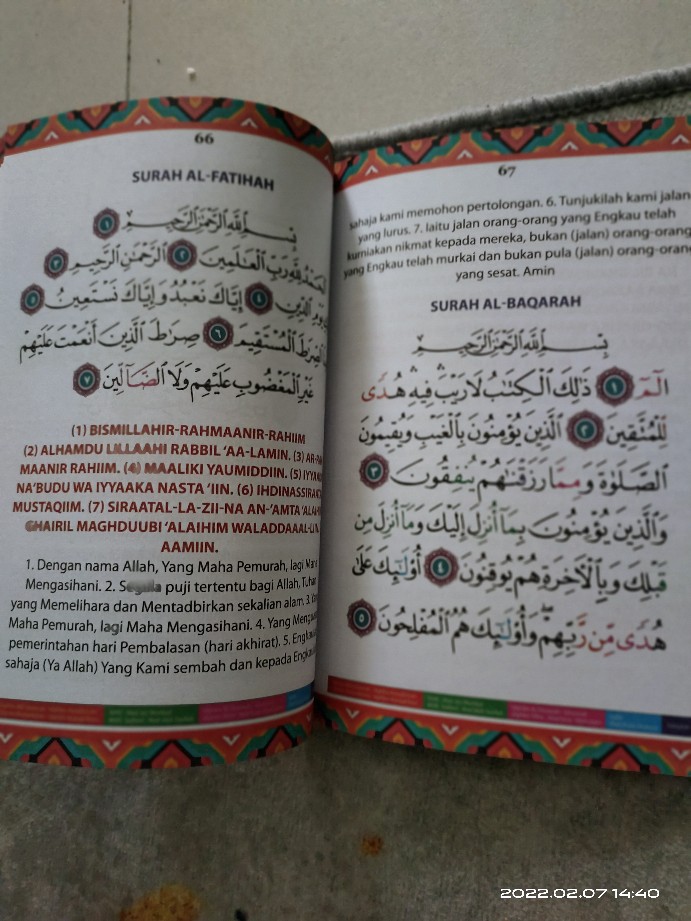 66
SURAH AL-FATIHAH
بِسْمِ اللَّهِ الرَّحْمَٰنِ الرَّحِيمِ ١
رَبِّ الْعَالَمِينَ ٢ الرَّحْمَٰنِ الرَّحِيمِ ٣
الدِّينِ ٤ إِيَّاكَ نَعْبُدُ وَإِيَّاكَ نَسْتَعِينُ ٥
الصِّرَاطَ الْمُسْتَقِيمَ ٦ صِرَاطَ الَّذِينَ أَنْعَمْتَ عَلَيْهِمْ
غَيْرِ الْمَغْضُوبِ عَلَيْهِمْ وَلَا الضَّالِّينَ ٧
(1) BISMILLAHIR-RAHMAANIR-RAHIIM
(2) ALHAMDU LILLAAHI RABBIL 'AA-LAMIN. (3)
MAANIR RAHIIM. (4) MAALIKI YAUMIDDIIN. (5)
NA'BUDU WA IYYAAKA NASTA 'IIN. (6)
MUSTAQIIM. (7) SIRAATAL-LA-ZII-NA AN-'AMTA
GHAIRIL MAGHDUUBI 'ALAIHIM
AAMIIN.
1. Dengan nama Allah, Yang Maha Pemurah, lagi
Mengasihani. 2. Segala puji tertentu bagi Allah,
yang Memelihara dan Mentadbirkan sekalian alam. 3.
Maha Pemurah, lagi Maha Mengasihani. 4. Yang
pemerintahan hari Pembalasan (hari akhirat). 5.
sahaja (Ya Allah) Yang Kami sembah dan kepada
67
sahaja kami memohon pertolongan. 6. Tunjukilah kami jalan
yang lurus. 7. Iaitu jalan orang-orang yang Engkau telah
kurniakan nikmat kepada mereka, bukan (jalan) orang-orang
yang Engkau telah murkai dan bukan pula (jalan) orang-orang
yang sesat. Amin
SURAH AL-BAQARAH
بِسْمِ اللَّهِ الرَّحْمَٰنِ الرَّحِيمِ
الٓمٓ ١ ذَٰلِكَ الْكِتَابُ لَا رَيْبَ فِيهِ هُدًى
لِّلْمُتَّقِينَ ٢ الَّذِينَ يُؤْمِنُونَ بِالْغَيْبِ وَيُقِيمُونَ
الصَّلَاةَ وَمِمَّا رَزَقْنَاهُمْ يُنفِقُونَ ٣
وَالَّذِينَ يُؤْمِنُونَ بِمَا أُنزِلَ إِلَيْكَ وَمَا أُنزِلَ مِن
قَبْلِكَ وَبِالْآخِرَةِ هُمْ يُوقِنُونَ ٤ أُولَٰئِكَ عَلَىٰ
هُدًى مِّن رَّبِّهِمْ وَأُولَٰئِكَ هُمُ الْمُفْلِحُونَ ٥
2022.02.07 14:40